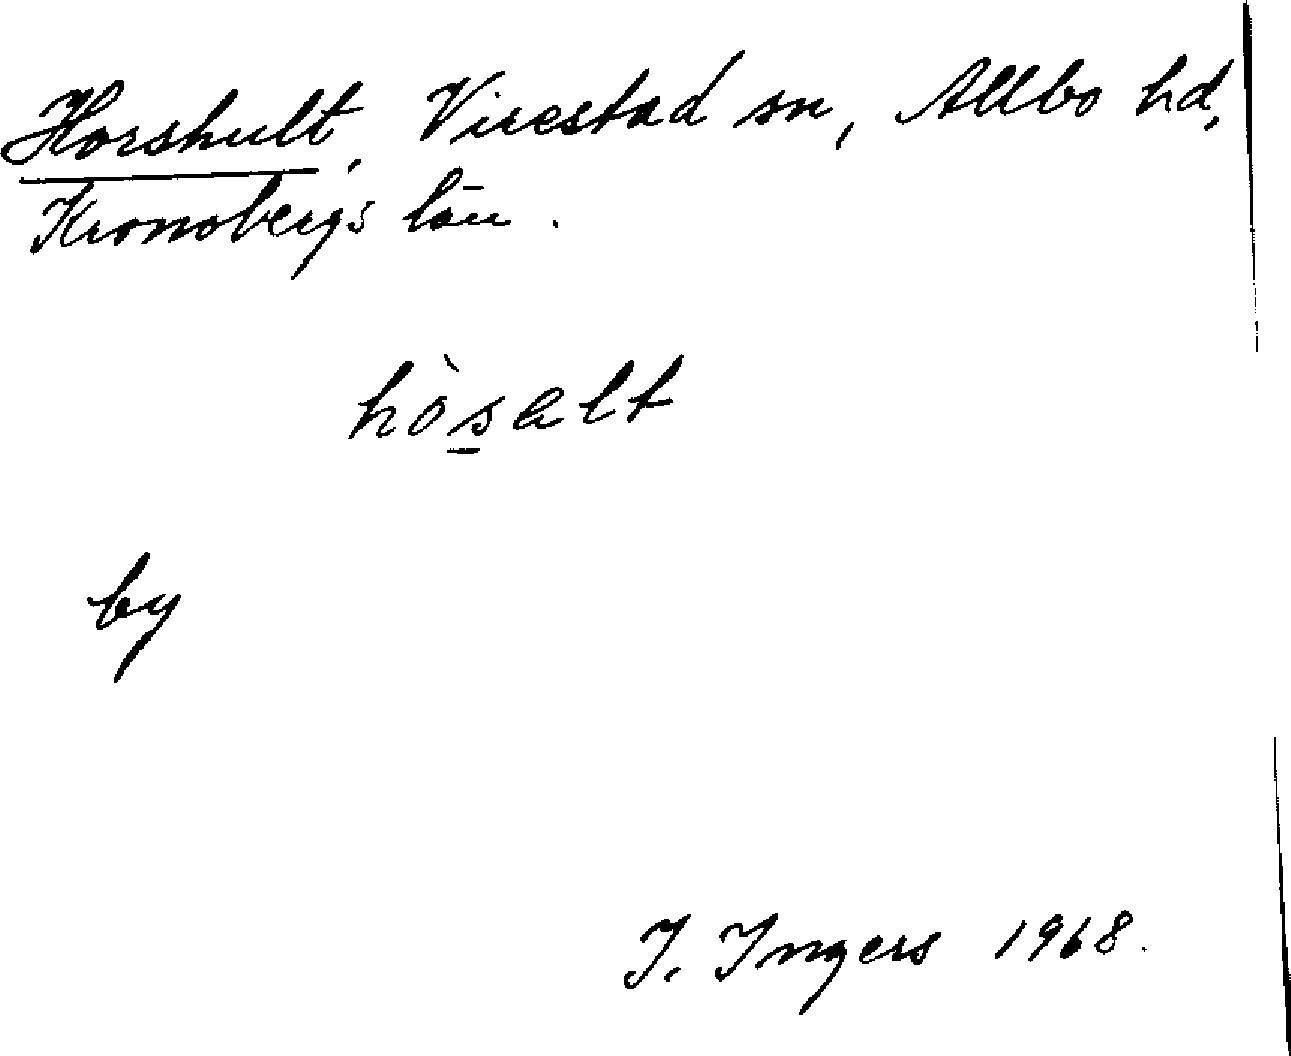 Horshult, Virestad sn, Allbo hd,
Kronobergs län.
hòs̲alt
by
I. Ingers 1968.